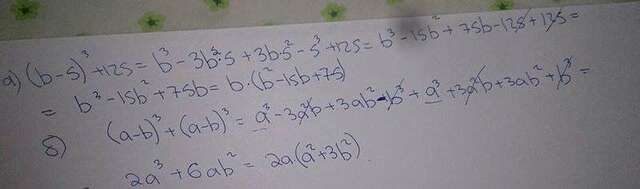 а) (b-5)³+125 = b³-3b²·5+3b·5²-5³+125 = b³-15b²+75b-125+125 =
= b³-15b²+75b = b·(b²-15b+75)
б) (a-b)³+(a-b)³ = a³-3a²b+3ab²-b³+a³+3a²b+3ab²+b³ =
2a³+6ab² = 2a(a²+3b²)